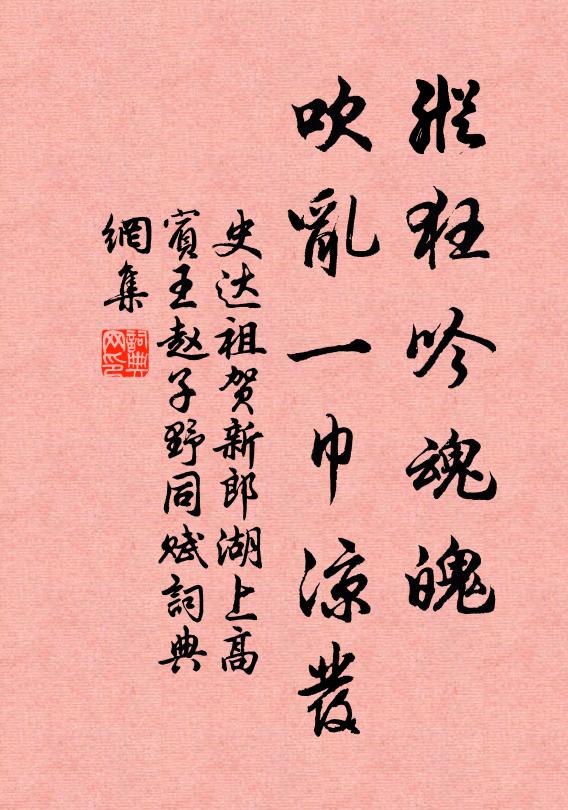 縱狂吟魂魄
吹亂一巾涼發
史达祖贺新郎湖上高
賓王赵子野同赋詞典
網集
詞典网印